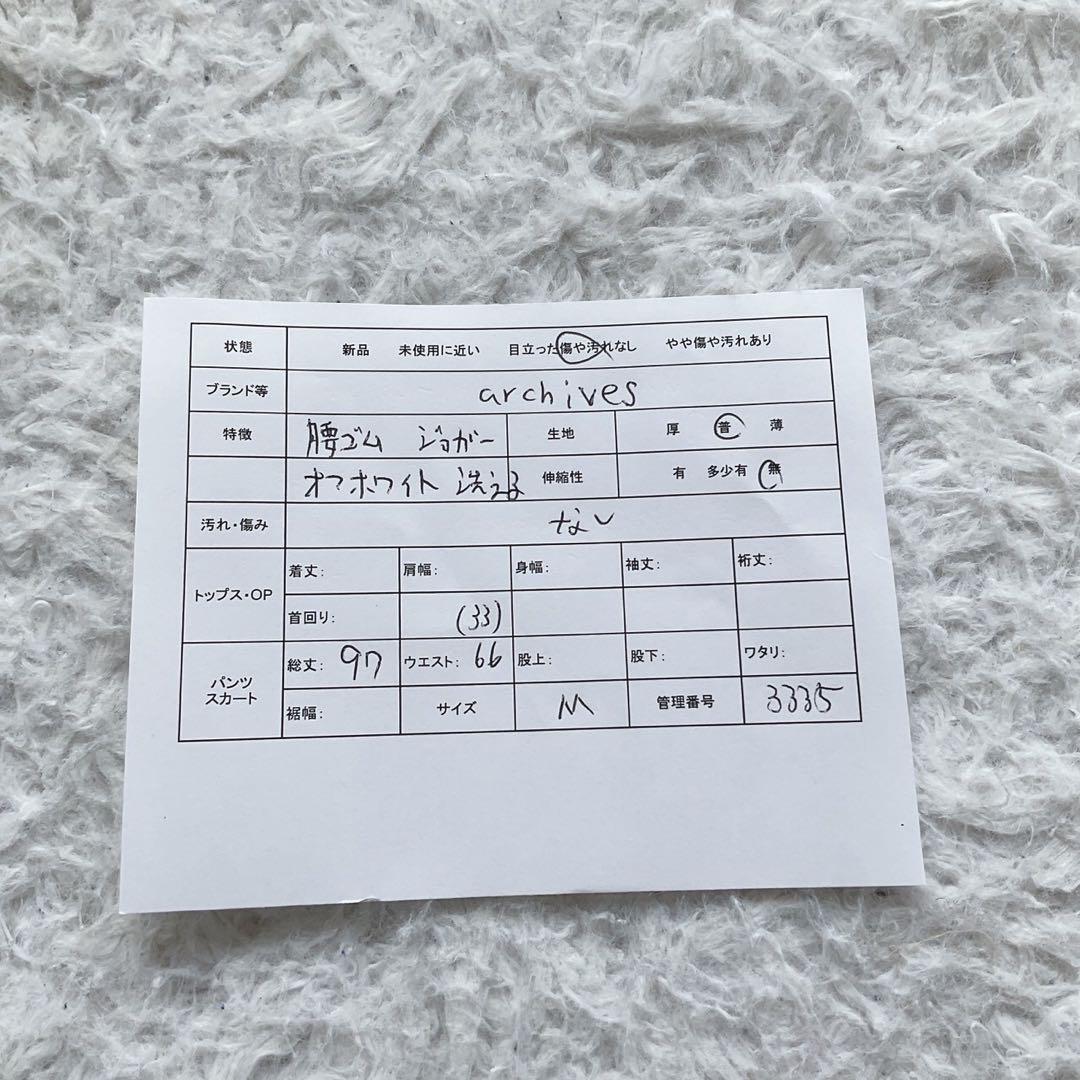 状態 新品 未使用に近い 目立った傷や汚れなし やや傷や汚れあり
ブランド等 archives
特徴 腰ゴム ジョガー 生地 厚 普 薄
オフホワイト 洗える 伸縮性 有 多少有 無
汚れ・傷み なし
トップス・OP 着丈: 肩幅: 身幅: 袖丈: 裄丈:
首回り: (33)
パンツ スカート 総丈: 97 ウエスト: 66 股上: 股下: ワタリ:
裾幅: サイズ M 管理番号 3335